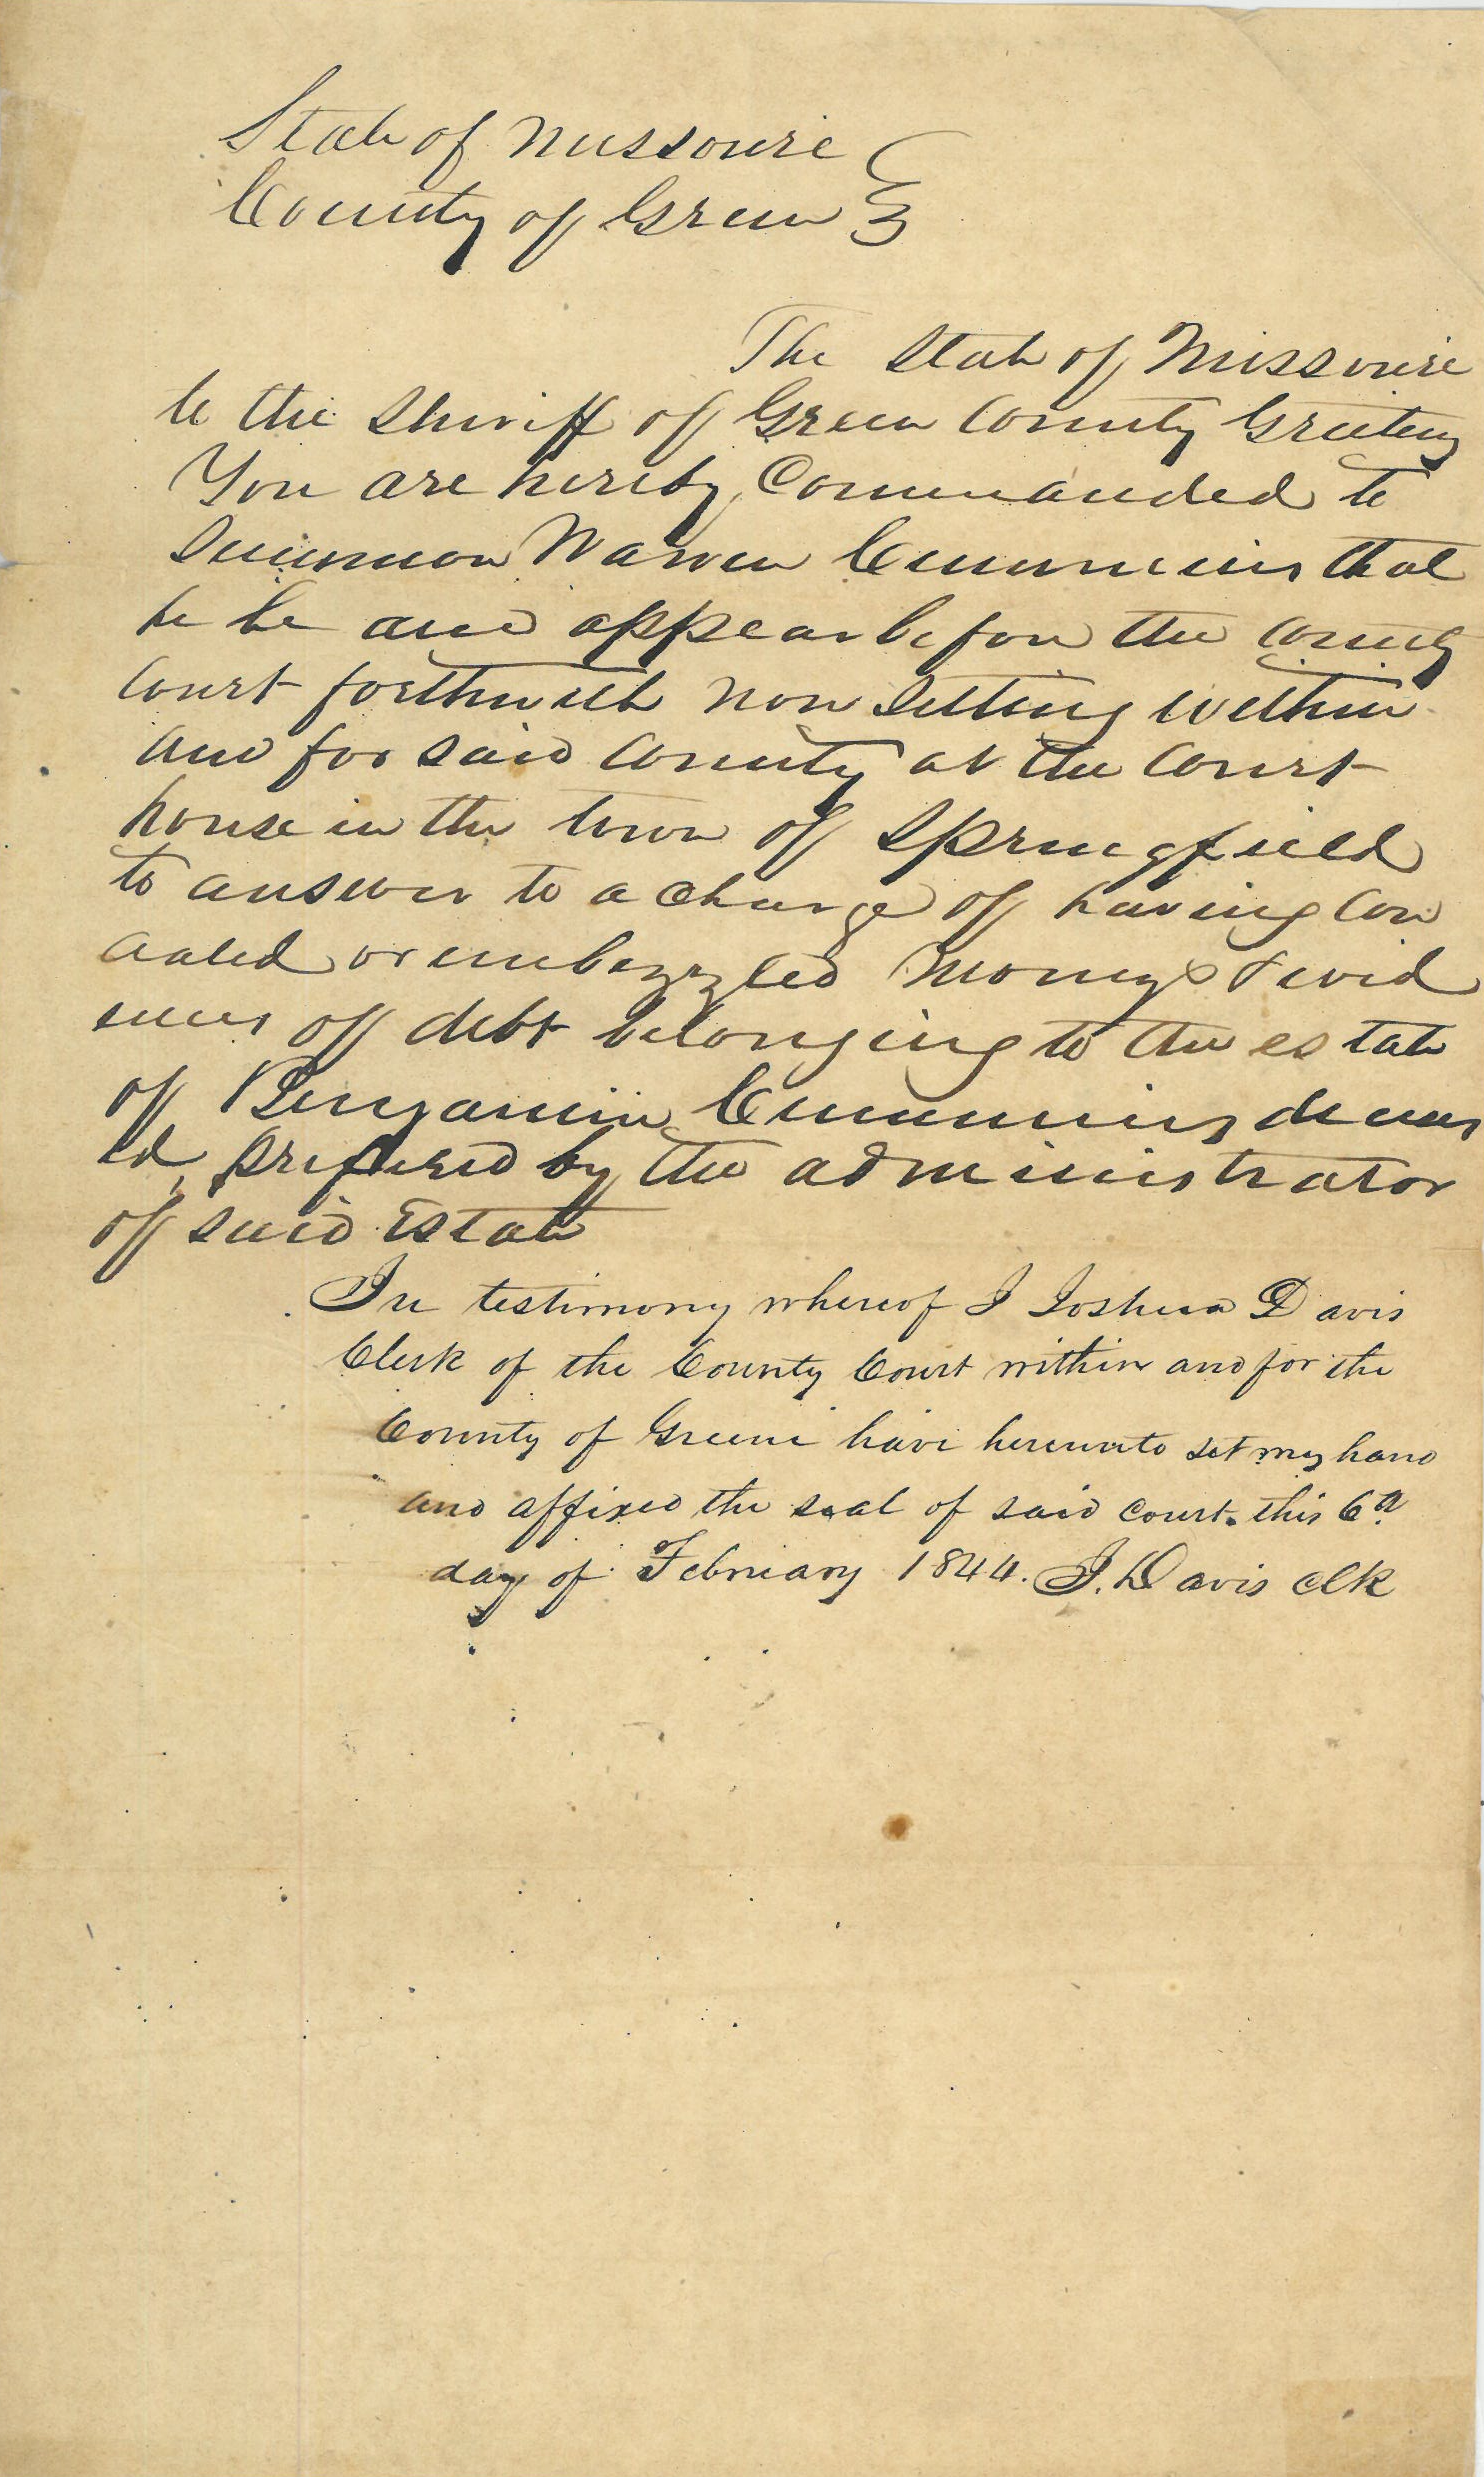 State of Missourie
County of Green
The State of Missourie
to the Sheriff of Green County Greeting
You are hereby Commanded to
Summon Warren Cummins that
he be and appear before the County
Court forthwith now Sitting within
and for said County at the Court
house in the town of Springfield
to answer to a charge of having con
cealed or embezzled moneys & evid
ences of debt belonging to the estate
of Benjamin Cummins deceas
ed, prefered by the administrator
of said Estate
In testimony whereof I Joshua Davis
Clerk of the County Court within and for the
County of Greene have hereunto set my hand
and affixed the seal of said court. this 6th
day of February 1844. J. Davis clk